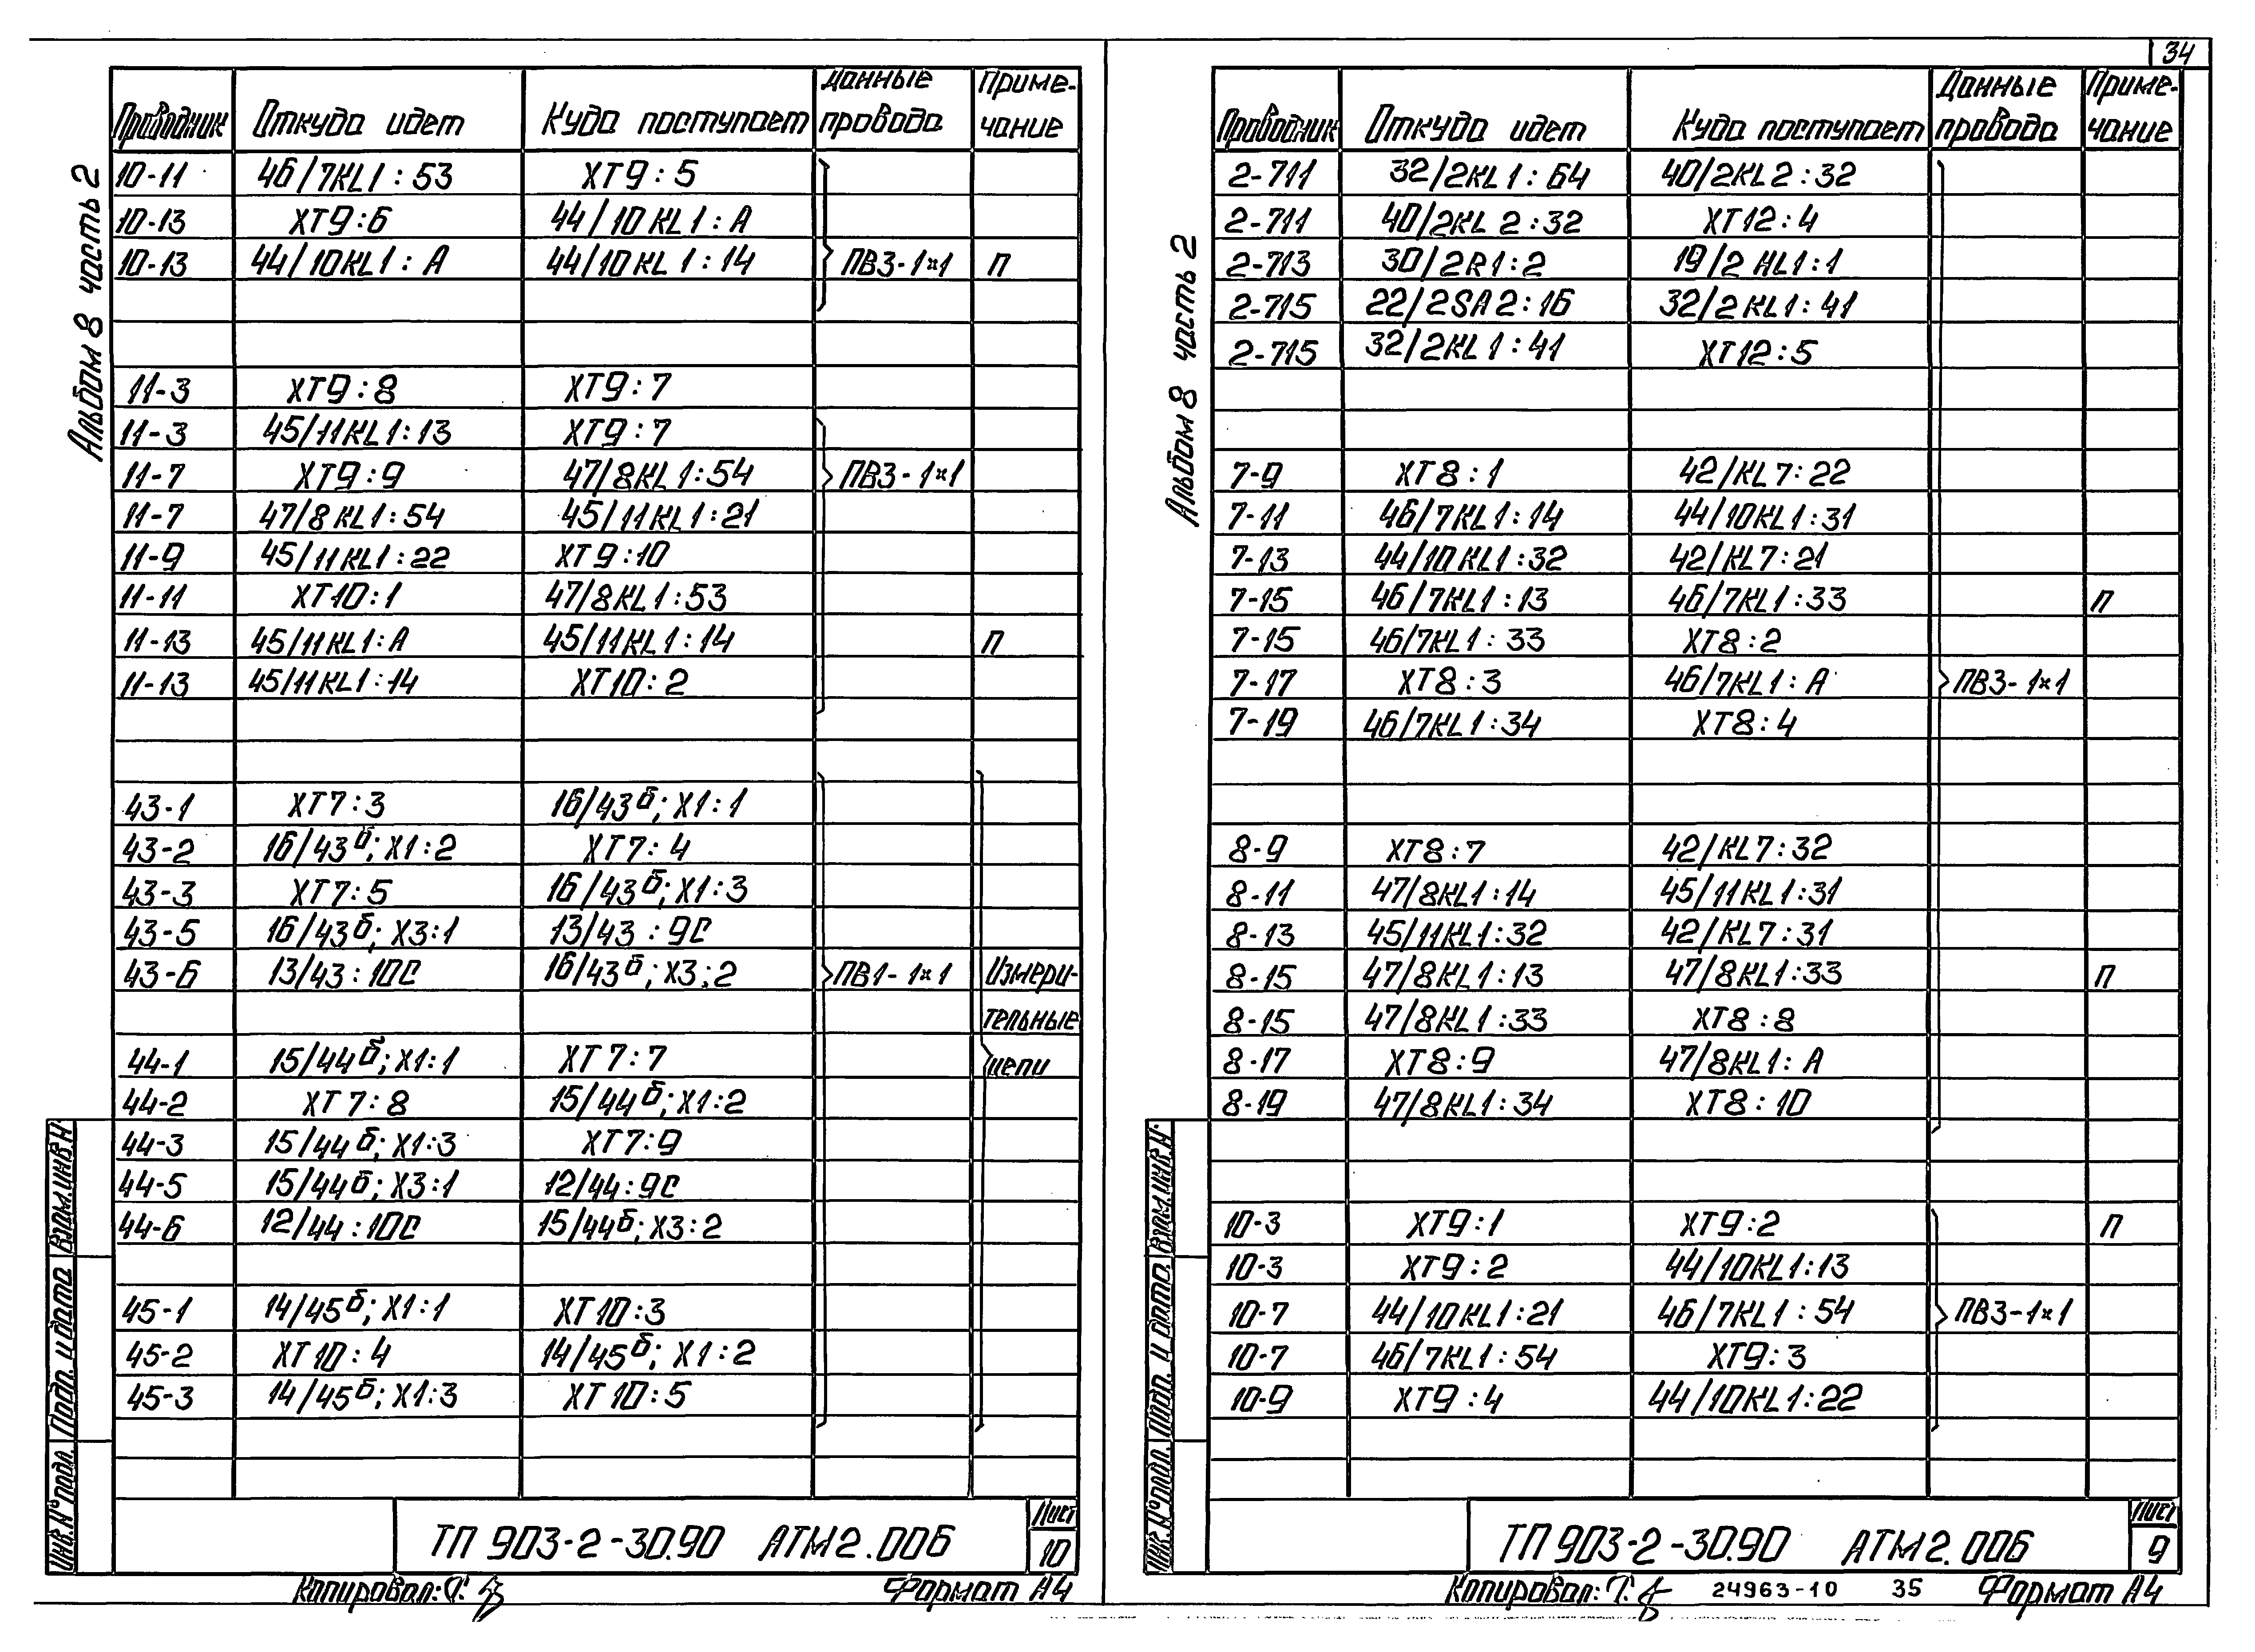 34
Альбом 8 часть 2
Проводник Откуда идет Куда поступает Данные провода Приме-чание
10-11 46/7KL1:53 XT9:5
10-13 XT9:6 44/10KL1:A
10-13 44/10KL1:A 44/10KL1:14 ПВ3-1×1 П
11-3 XT9:8 XT9:7
11-3 45/11KL1:13 XT9:7
11-7 XT9:9 47/8KL1:54 ПВ3-1×1
11-7 47/8KL1:54 45/11KL1:21
11-9 45/11KL1:22 XT9:10
11-11 XT10:1 47/8KL1:53
11-13 45/11KL1:A 45/11KL1:14 П
11-13 45/11KL1:14 XT10:2
43-1 XT7:3 16/43б; X1:1
43-2 16/43б; X1:2 XT7:4
43-3 XT7:5 16/43б; X1:3
43-5 16/43б; X3:1 13/43:9С
43-6 13/43:10С 16/43б; X3:2 ПВ1-1×1 Измери-
тельные
44-1 15/44б; X1:1 XT7:7 цепи
44-2 XT7:8 15/44б; X1:2
44-3 15/44б; X1:3 XT7:9
44-5 15/44б; X3:1 12/44:9С
44-6 12/44:10С 15/44б; X3:2
45-1 14/45б; X1:1 XT10:3
45-2 XT10:4 14/45б; X1:2
45-3 14/45б; X1:3 XT10:5
Взам.инв.N
Подп. и дата
Инв.N°подл.
ТП 903-2-30.90 АТМ2.006
Лист
10
Копировал:
Формат А4
Альбом 8 часть 2
Проводник Откуда идет Куда поступает Данные провода Приме-чание
2-711 32/2KL1:64 40/2KL2:32
2-711 40/2KL2:32 XT12:4
2-713 30/2R1:2 19/2HL1:1
2-715 22/2SA2:16 32/2KL1:41
2-715 32/2KL1:41 XT12:5
7-9 XT8:1 42/KL7:22
7-11 46/7KL1:14 44/10KL1:31
7-13 44/10KL1:32 42/KL7:21
7-15 46/7KL1:13 46/7KL1:33 П
7-15 46/7KL1:33 XT8:2
7-17 XT8:3 46/7KL1:A ПВ3-1×1
7-19 46/7KL1:34 XT8:4
8-9 XT8:7 42/KL7:32
8-11 47/8KL1:14 45/11KL1:31
8-13 45/11KL1:32 42/KL7:31
8-15 47/8KL1:13 47/8KL1:33 П
8-15 47/8KL1:33 XT8:8
8-17 XT8:9 47/8KL1:A
8-19 47/8KL1:34 XT8:10
10-3 XT9:1 XT9:2 П
10-3 XT9:2 44/10KL1:13
10-7 44/10KL1:21 46/7KL1:54 ПВ3-1×1
10-7 46/7KL1:54 XT9:3
10-9 XT9:4 44/10KL1:22
Взам.инв.N
Подп. и дата
Инв.N°подл.
ТП 903-2-30.90 АТМ2.006
Лист
9
Копировал:
24963-10 35
Формат А4